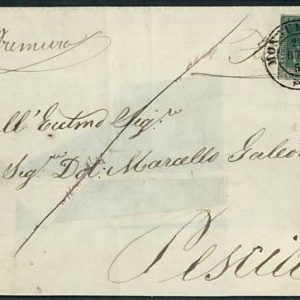 Premura
All'Ecctmo Sigr.
Sigr. Dot: Marcello Galeo
Pescia
MON